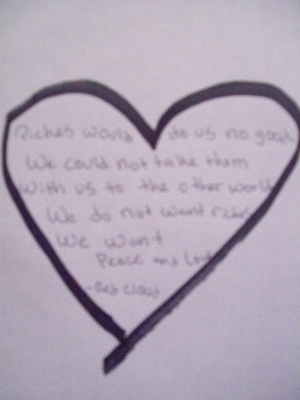 Riches would do us no good
We could not take them
with us to the other world
We do not want riches
We want
Peace and Love
- Red Cloud